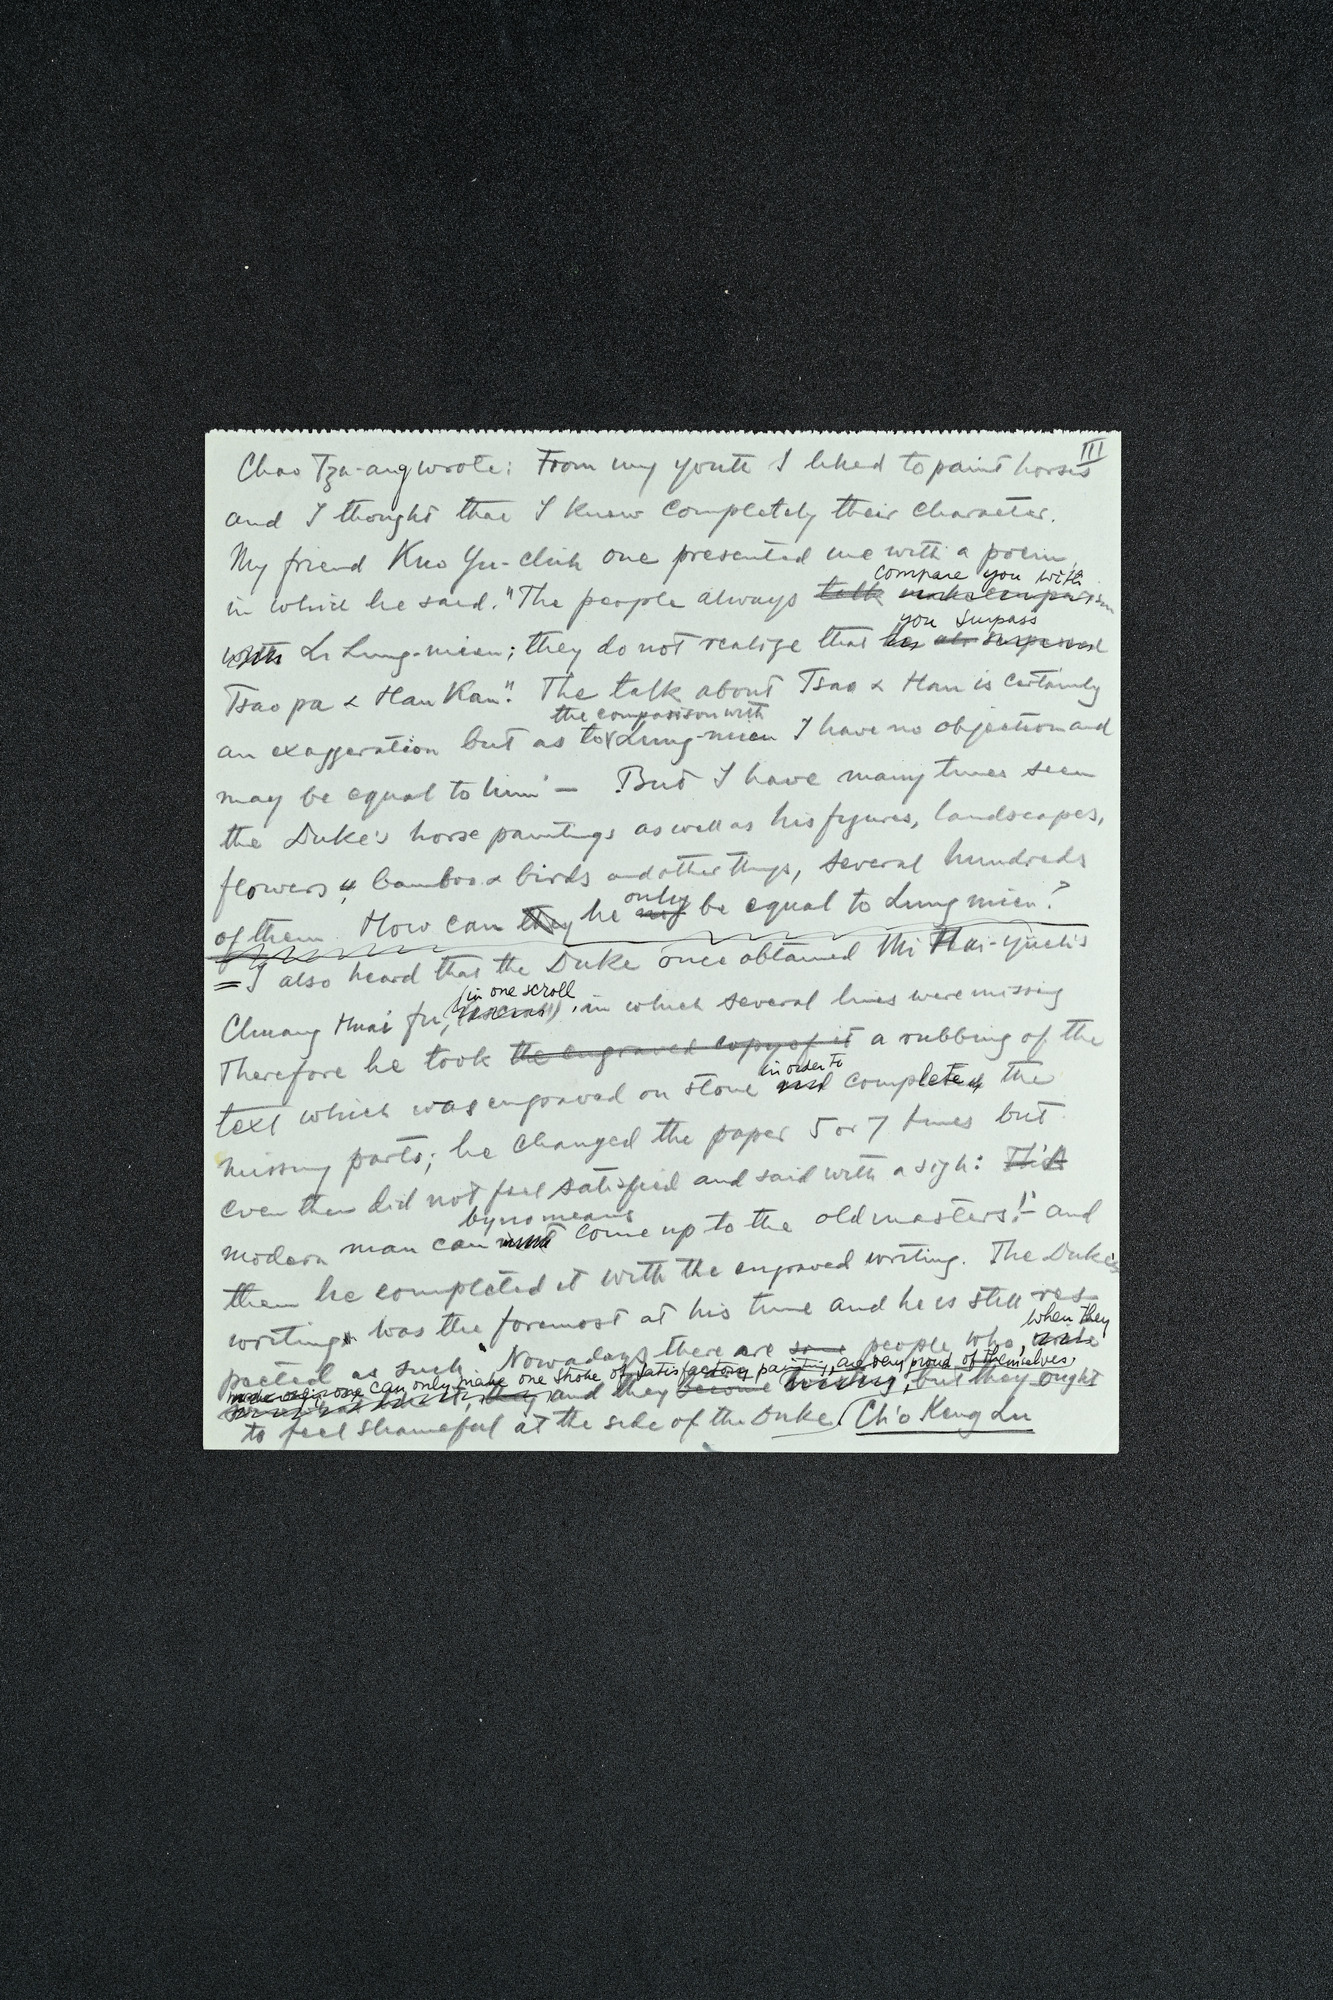 III
Chao Tza-ang wrote: From my youth I liked to paint horses
and I thought that I knew completely their character.
My friend Kuo Yu-chih one presented me with a poem,
compare you with
in which he said. "The people always talk make comparison
you surpass
with Li Lung-mien; they do not realize that he surpassed
Tsao pa & Han Kan". The talk about Tsao & Han is certainly
the comparison with
an exaggeration but as to Lung-mien I have no objection and
may be equal to him' — But I have many times seen
the Duke's horse paintings as well as his figures, landscapes,
flowers, bamboo & birds and other things, several hundreds
only
of them. How can they he be equal to Lung mien?
= I also heard that the Duke once obtained Mi Hai-yueh's
(in one scroll
Chuang Huai fu, in which several lines were missing
Therefore he took the engraved copy of it a rubbing of the
in order to
text which was engraved on stone and complete the
missing parts; he changed the paper 5 or 7 times but
even then did not feel satisfied and said with a sigh: This
by no means
modern man can must come up to the old masters!- and
then he completed it with the engraved writing. The Duke's
writings was the foremost at his time and he is still res-
when they
pected as such. Nowadays there are some people who,
can only make one stroke of satisfactory painting, are very proud of themselves,
they and they become but they ought
to feel shameful at the side of the Duke. (Ch'o Keng Lu